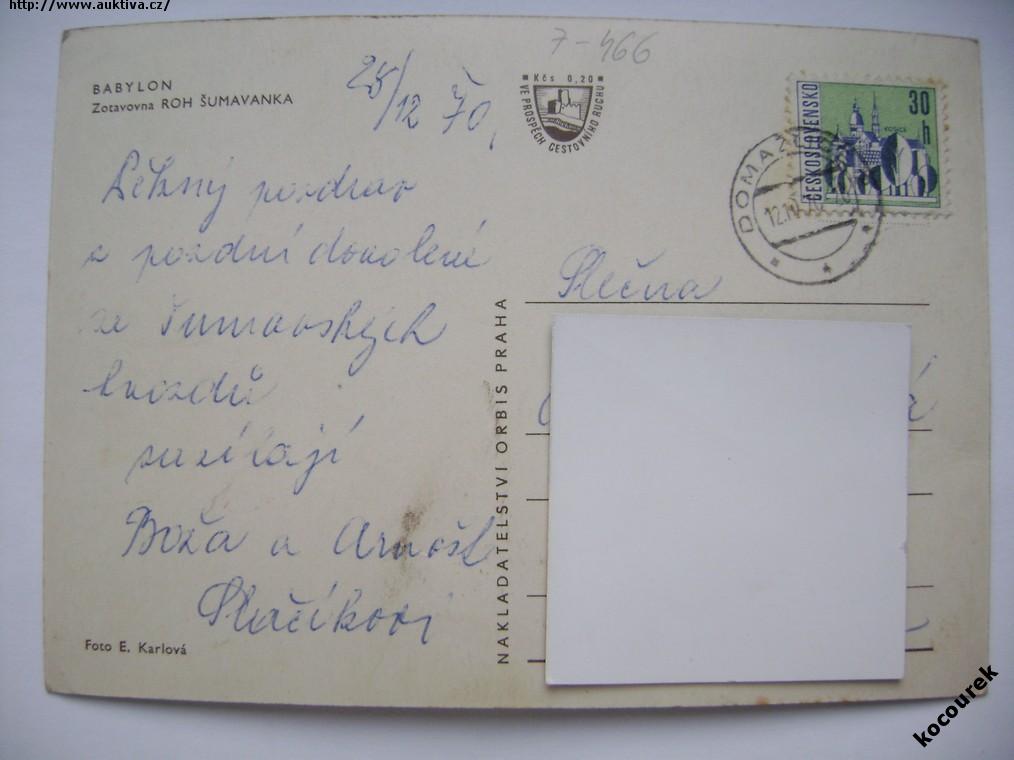 http://www.auktiva.cz/
7-466
BABYLON
Zotavovna ROH ŠUMAVANKA
/12 70,
Kčs 0,20
VE PROSPĚCH CESTOVNÍHO RUCHU
ČESKOSLOVENSKO
30 h
KOŠICE
DOMAŽ
12.
pozdrav
z pozdní dovolené
ze Šumavských
hvozdů
zasílají
Boža a Arnošt
Slečna
NAKLADATELSTVÍ ORBIS PRAHA
Foto E. Karlová
kocourek